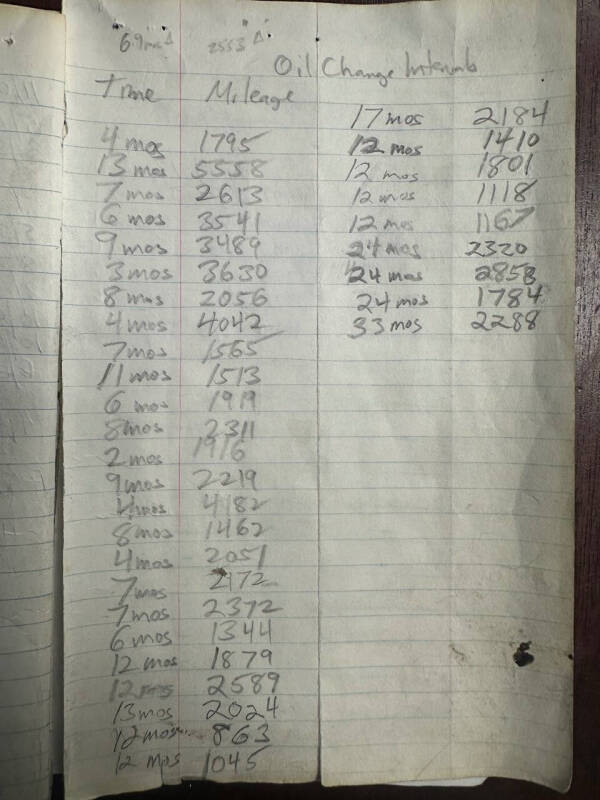 6.9mos Δ 2553 Δ
Oil Change Intervals
Time Mileage
4 mos 1795
13 mos 5558
7 mos 2613
6 mos 3541
9 mos 3489
3 mos 3630
8 mos 2056
4 mos 4042
7 mos 1565
11 mos 1513
6 mos 1919
8 mos 2311
2 mos 1916
9 mos 2219
4 mos 4182
8 mos 1462
4 mos 2051
7 mos 2172
7 mos 2372
6 mos 1344
12 mos 1879
12 mos 2589
13 mos 2024
12 mos 863
12 mos 1045
17 mos 2184
12 mos 1410
12 mos 1801
12 mos 1118
12 mos 1167
24 mos 2320
24 mos 2858
24 mos 1784
33 mos 2288